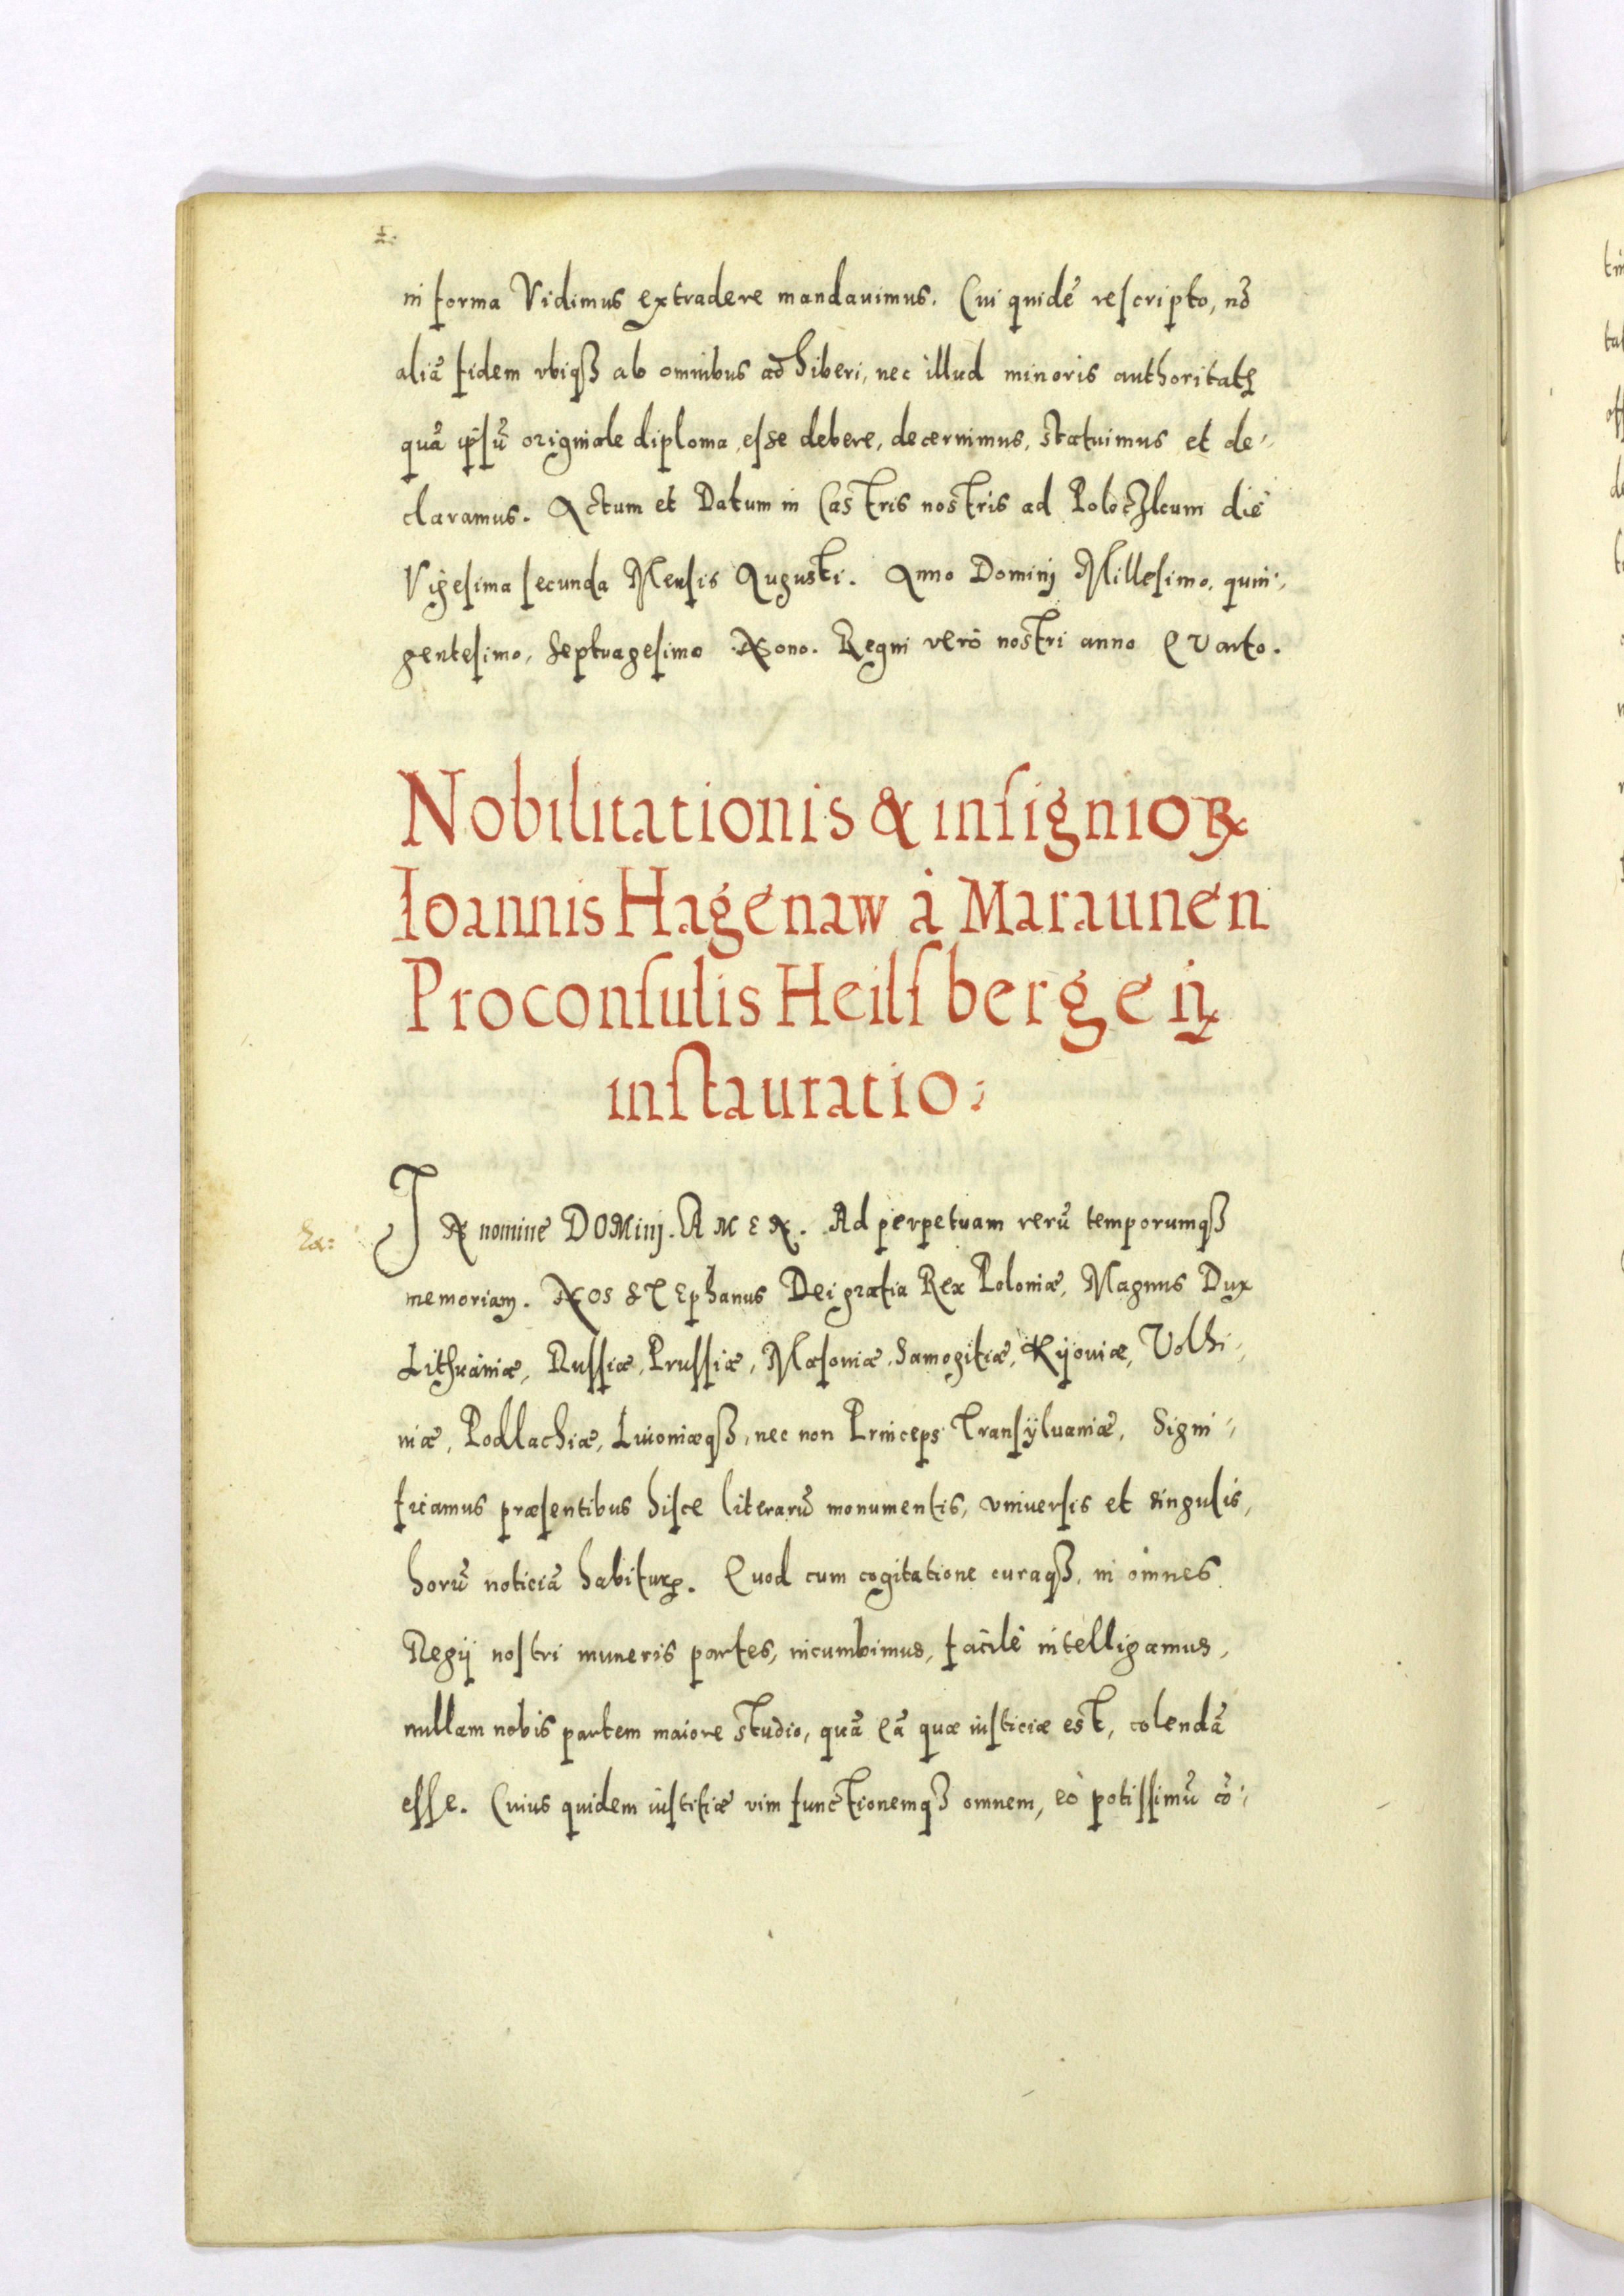 in forma Vidimus extradere mandauimus. Cui quidē rescripto, nō
aliā fidem vbiqꝫ ab omnibus adhiberi, nec illud minoris authoritatꝭ
quā ipsū originale diploma, esse debere, decernimus, statuimus et de-
claramus. Actum et Datum in Castris nostris ad Poloczkum die
Vigesima secunda Mensis Augusti. Anno Dominj Millesimo, quin-
gentesimo, Septuagesimo Nono. Regni verò nostri anno Quarto.
Nobilitationis & insignioꝝ
Ioannis Hagenaw à Maraunen
Proconsulis Heilsbergen̄
instauratio:
IN nomine DOMinj. AMEN. Ad perpetuam rerū temporumqꝫ
memoriam. NOS STEphanus Dei gratia Rex Poloniæ, Magnus Dux
Lithuaniæ, Russiæ, Prussiæ, Masoniæ, Samogitiæ, Kijouiæ, Volhi-
niæ, Podlachiæ, Liuoniæqꝫ, nec non Princeps Transÿluaniæ, Signi-
ficamus præsentibus hisce literarū monumentis, vniuersis et singulis,
horū noticiā habiturꝭ. Quod cum cogitatione curaqꝫ, in omnes
Regij nostri muneris partes, incumbimus, facilè intelligamus,
nullam nobis partem maiore studio, quā eā quæ iusticiæ est, colendā
esse. Cuius quidem iustitiæ vim functionemqꝫ omnem, eò potissimū cō-